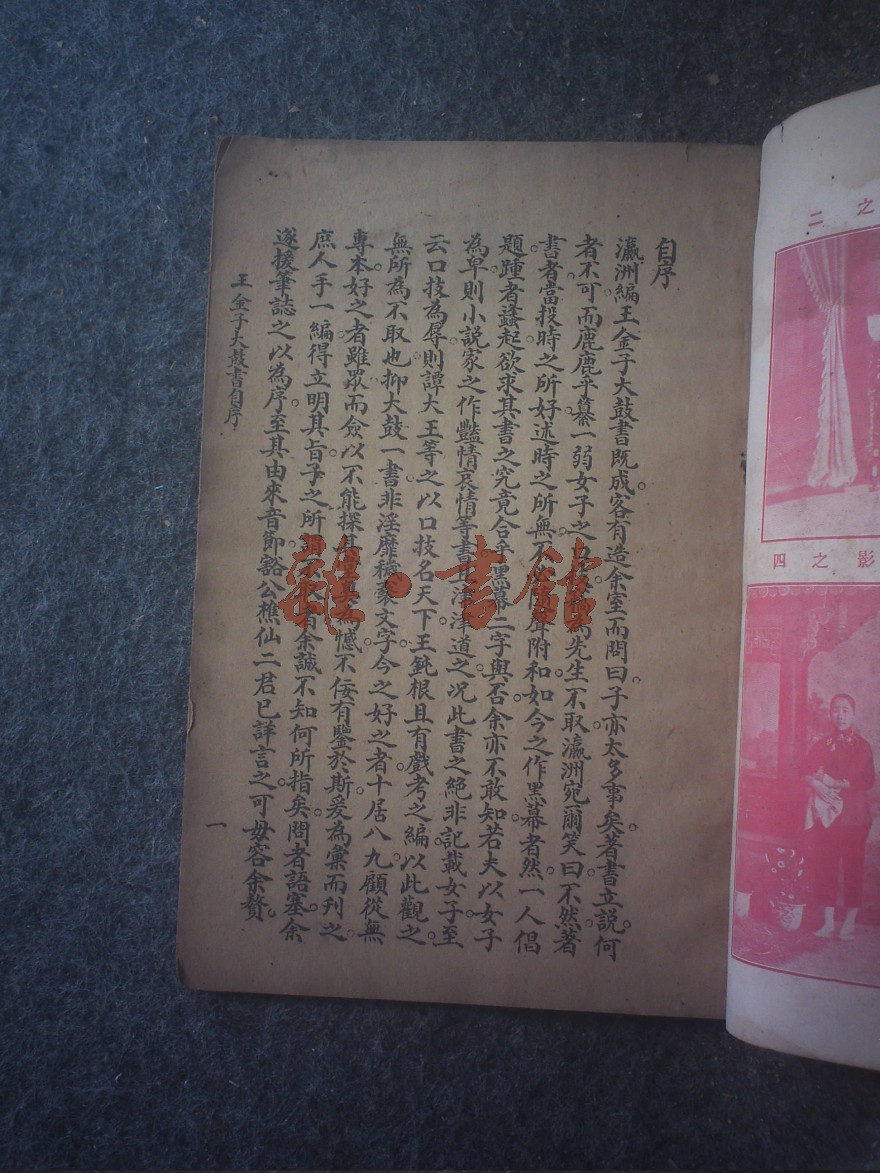 自序
瀛洲編王金子大鼓書既成。客有造余室而問曰。子亦太多事矣。著書立說。何
者不可。而鹿鹿乎纂一弱女子之為先生不取。瀛洲宛爾笑曰。不然。著
書者當投時之所好。述時之所無。不附和。如今之作黑幕者然。一人倡
題。踵者蠭起。欲求其書之究竟合乎黑幕二字與否。余亦不敢知。若夫以女子
為卑。則小說家之作豔情哀情等書。津津道之。况此書之絕非記載女子。至
云口技為辱。則譚大王等之以口技名天下。王鈍根且有戲考之編。以此觀之。
無所為不取也。抑大鼓一書。非淫靡穢褻文字。今之好之者十居八九。顧從無
專本。好之者雖眾。而僉以不能探其為憾。不佞有鑒於斯。爰為彙而刊之。
庶人手一編。得立明其旨。子之所謂余誠不知何所指矣。問者語塞。余
遂援筆誌之以為序。至其由來音節。豁公樵仙二君已詳言之。可毋容余贅。
王金子大鼓書自序
一
之二
影之四
雜·書館